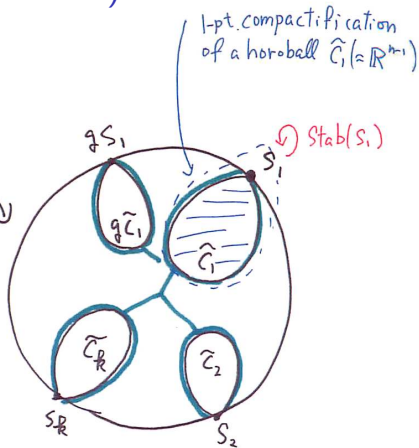 1-pt. compactification
of a horoball C̃₁ (≈ ℝⁿ⁻¹)
gS₁
S₁
Stab(S₁)
gC̃₁
C̃₁
C̃ₖ
C̃₂
Sₖ
S₂